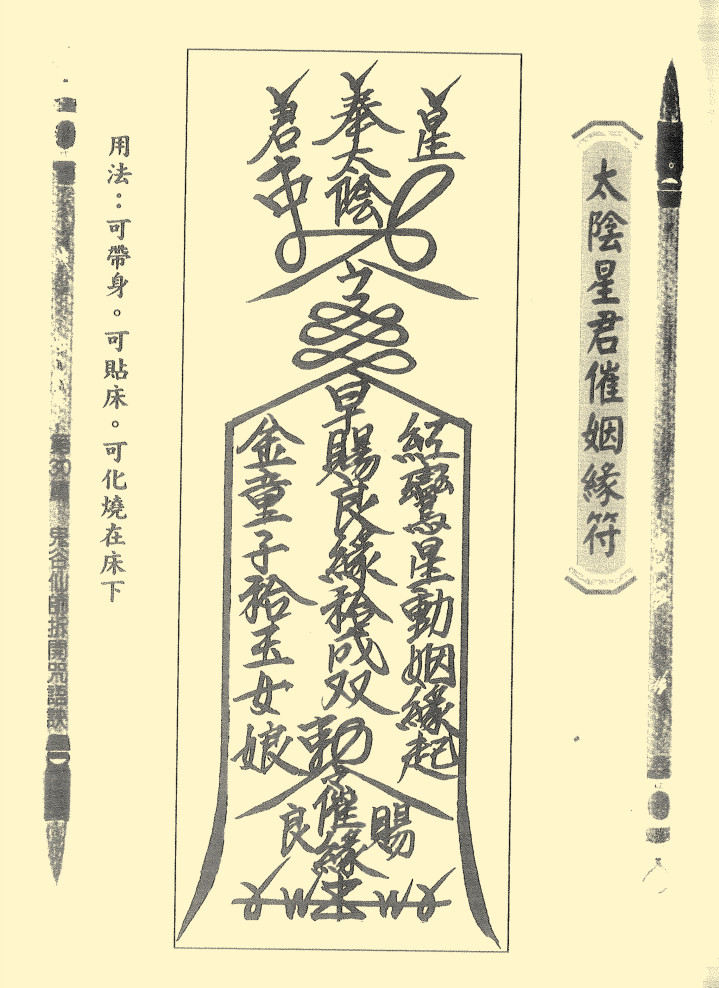 太陰星君催姻緣符
星
奉太陰
君
紅鸞星動姻緣起
早賜良緣袷成双
金童子袷玉女娘
賜
勅令催緣
良
用法：可帶身。可貼床。可化燒在床下
第30輯 鬼谷仙師拆開咒語訣